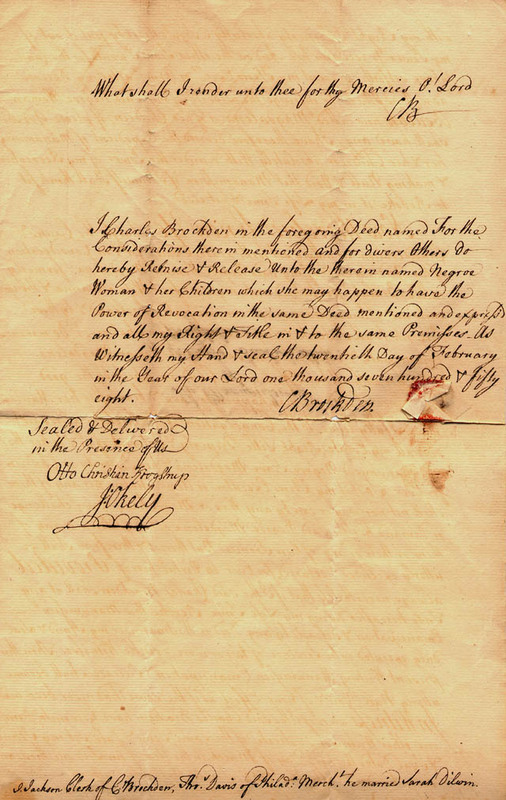 What shall I render unto thee for thy Mercies O! Lord
CB
I Charles Brockden in the foregoing Deed named For the
Considerations therein mentioned and for divers Others Do
hereby Remise & Release Unto the therein named Negroe
Woman & her Children which she may happen to have the
Power of Revocation in the same Deed mentioned and express'd
and all my Right & Title in & to the same Premisses. As
Witnesseth my Hand & seal the twentieth Day of February
in the Year of our Lord one thousand seven hundred & fifty
eight.
CBrockden.
Sealed & Delivered
in the Presence of Us
Otto Christian Krogstrup
JOkely
J. Jackson Clerk of C Brockden, Thos. Davis of Philada. Mercht. he married Sarah Dilwin.